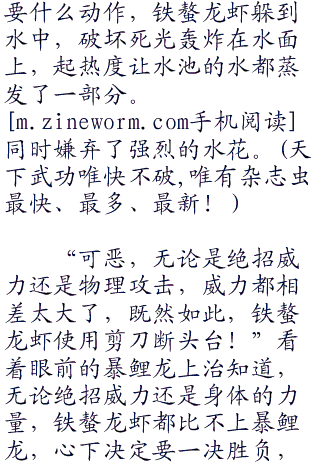 要什么动作，铁螯龙虾躲到
水中，破坏死光轰炸在水面
上，起热度让水池的水都蒸
发了一部分。
[m.zineworm.com手机阅读]
同时嫌弃了强烈的水花。(天
下武功唯快不破,唯有杂志虫
最快、最多、最新！)
“可恶，无论是绝招威
力还是物理攻击，威力都相
差太大了，既然如此，铁螯
龙虾使用剪刀断头台！”看
着眼前的暴鲤龙上治知道，
无论绝招威力还是身体的力
量，铁螯龙虾都比不上暴鲤
龙，心下决定要一决胜负，